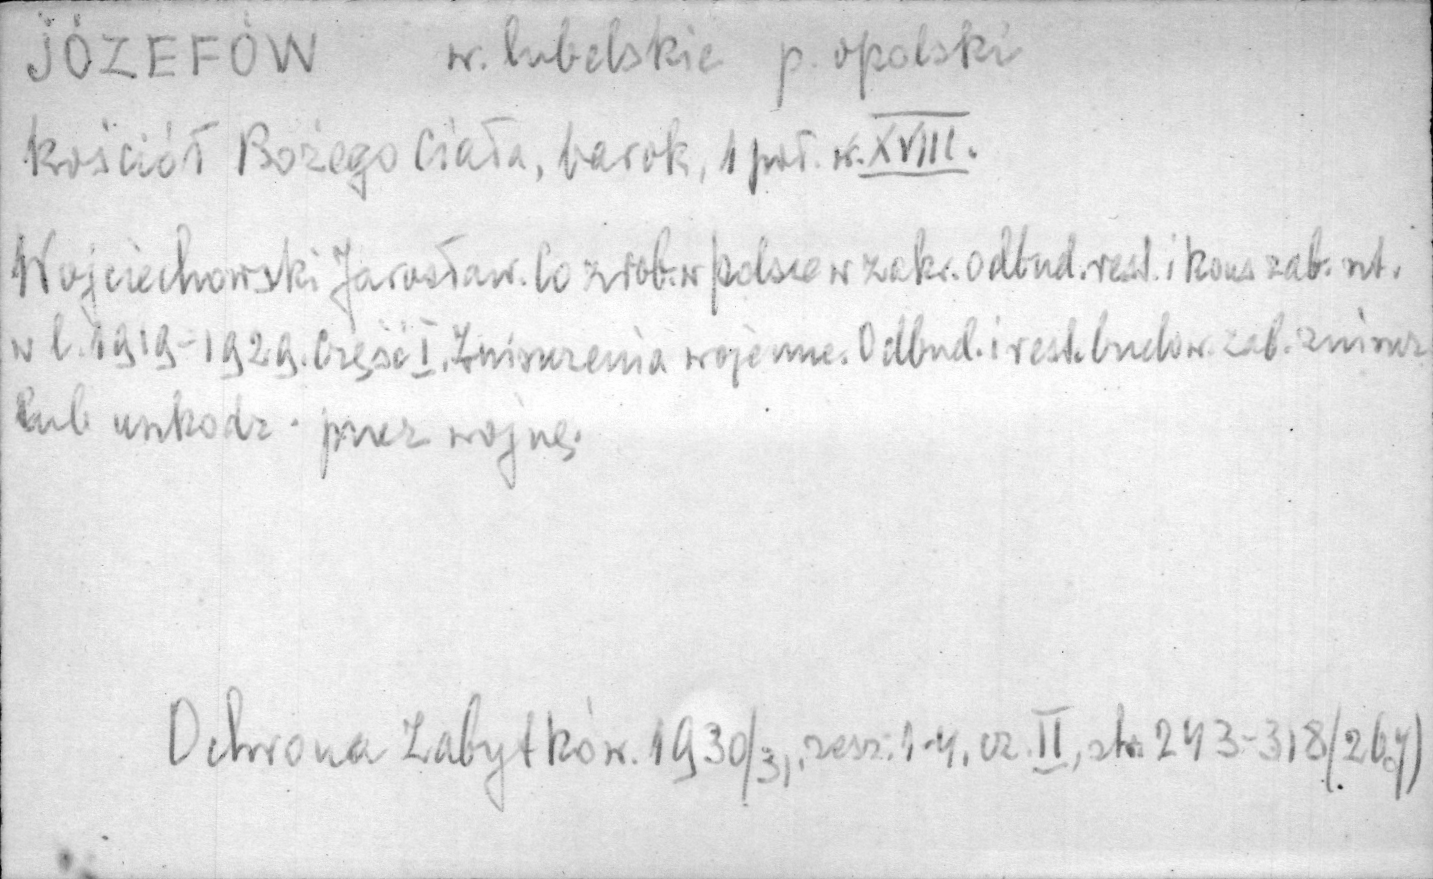 JÓZEFÓW w. lubelskie p. opolski
kościół Bożego Ciała, barok, 1 poł. w. XVIII.
Wojciechowski Jarosław. Co zrob. w Polsce w zakr. odbud. rest. i kons zab. szt.
w l. 1919-1929. Część I. Zniszczenia wojenne. Odbud. i rest. budow. zab. zniszcz
lub uszkodz. przez wojnę.
Ochrona Zabytków. 1930/31, zesz. 1-4, cz. II, str. 243-318